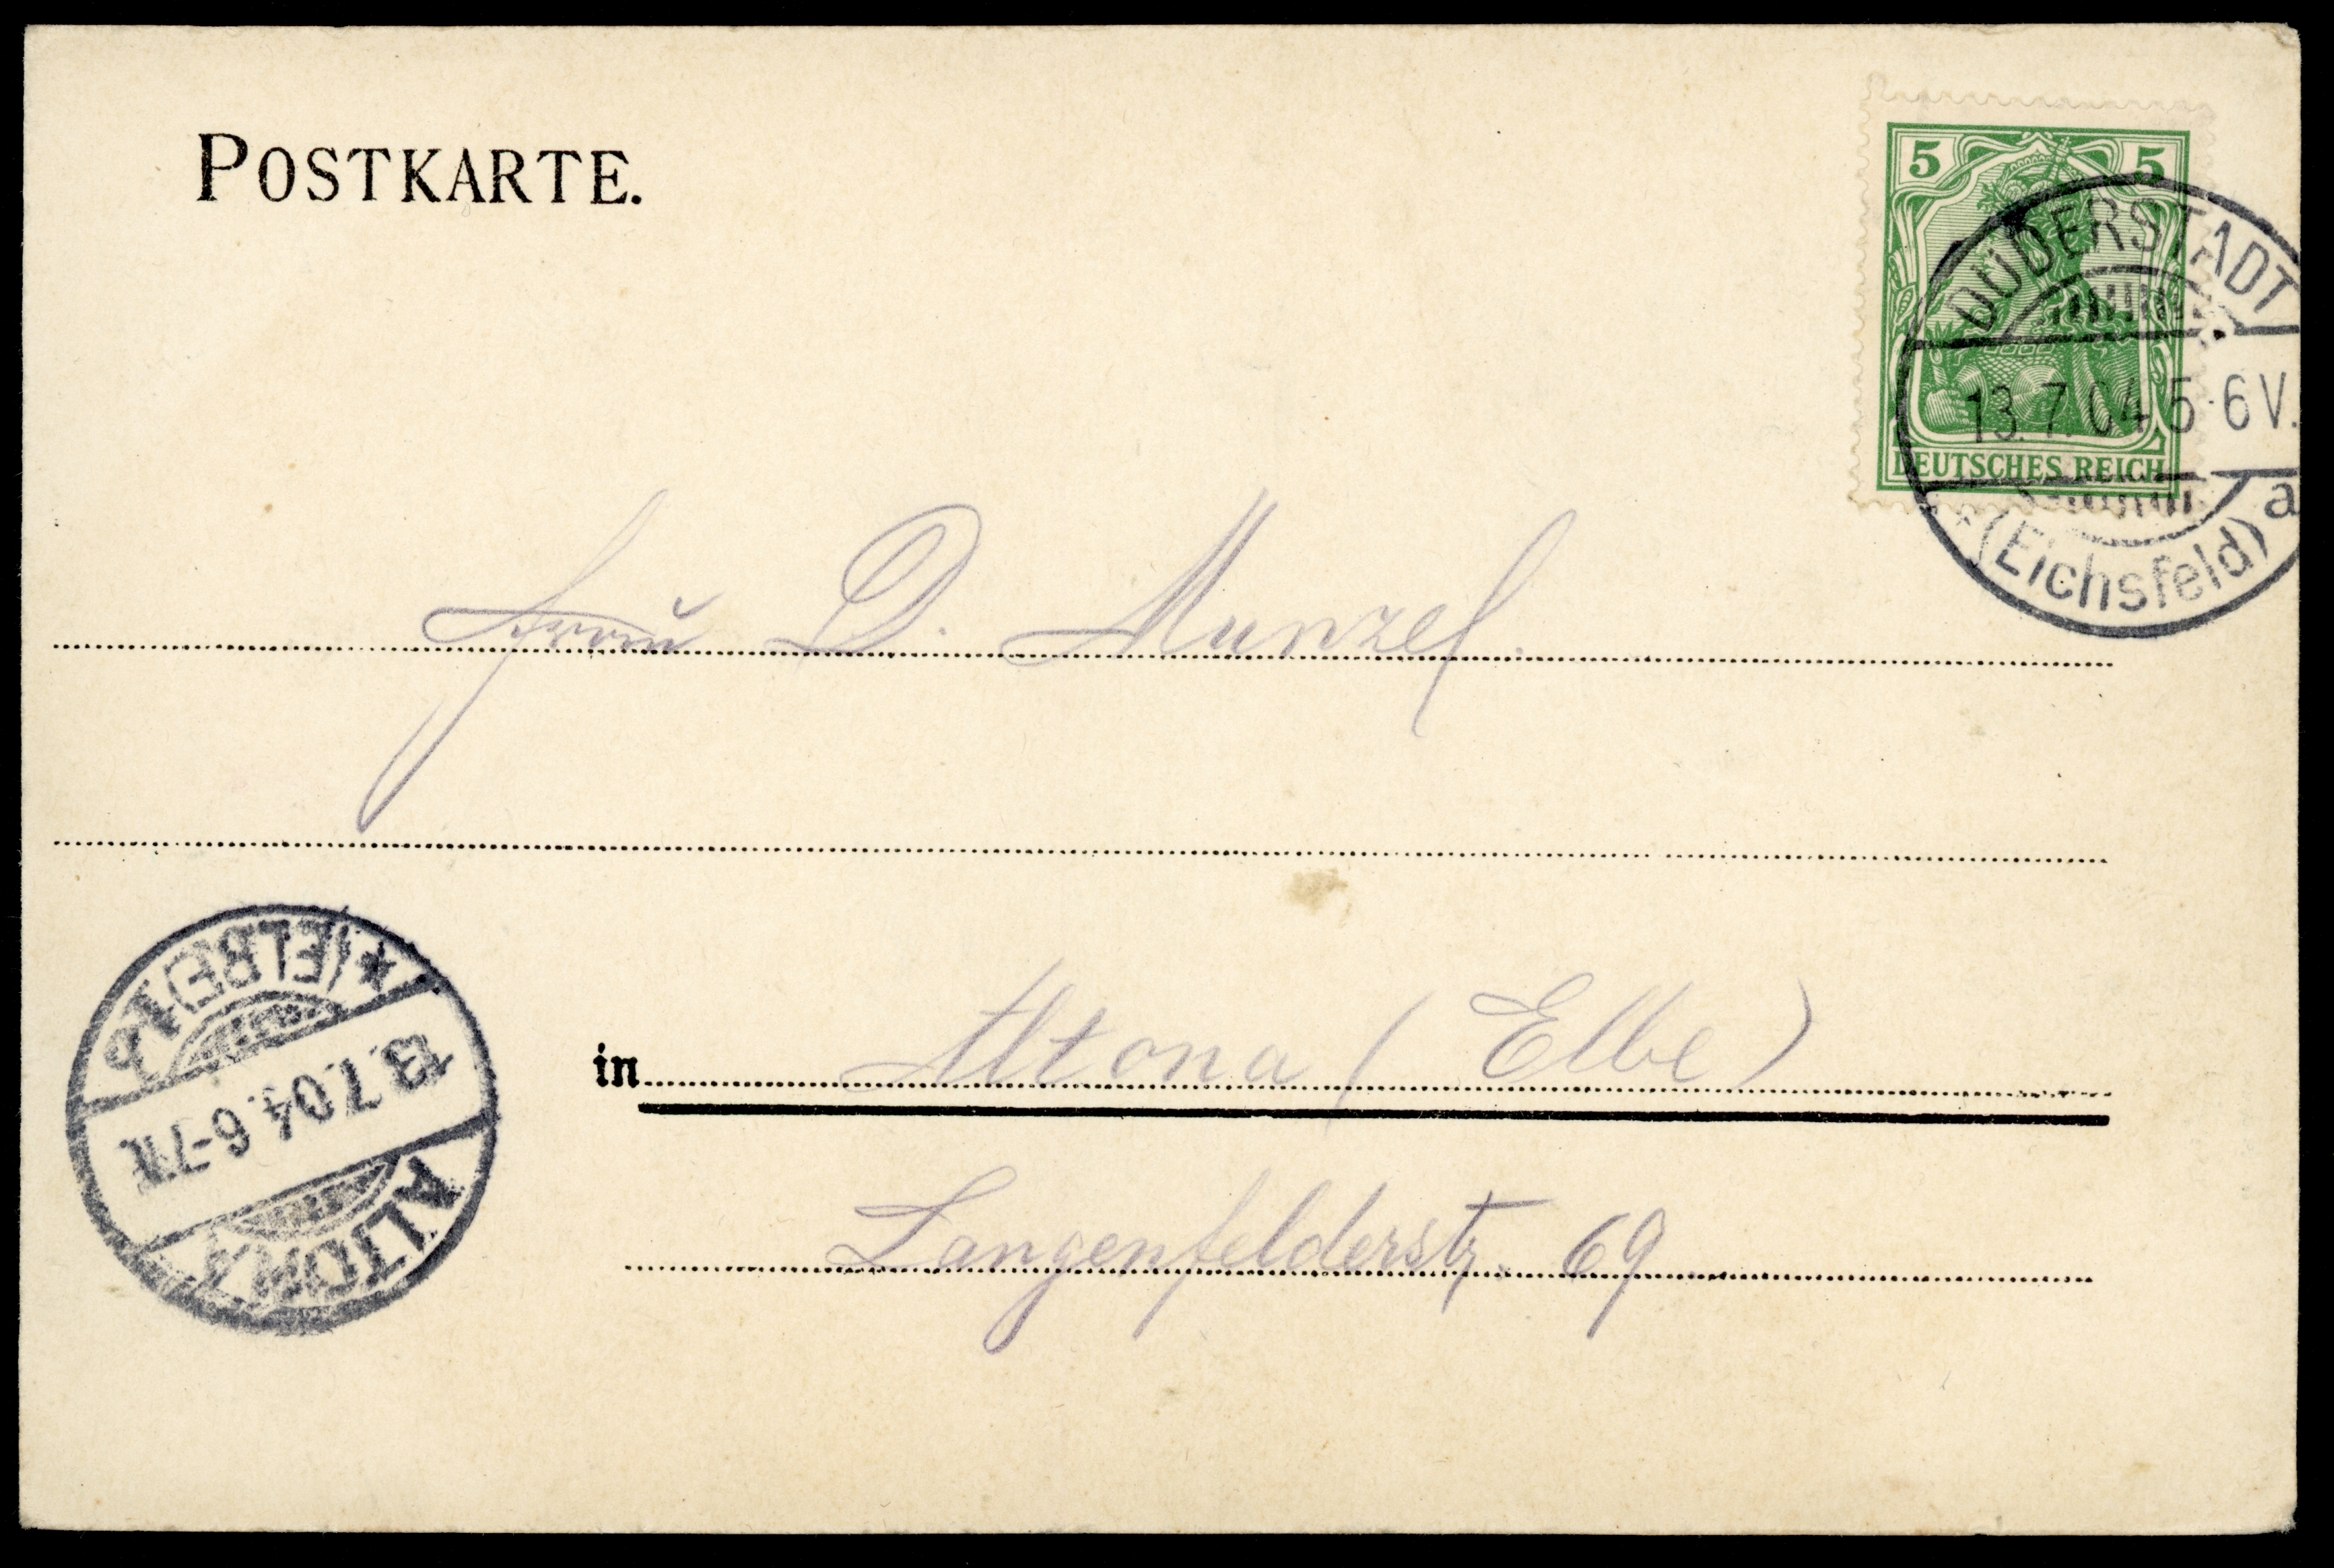 POSTKARTE.
5 5
DEUTSCHES REICH
DUDERSTADT
13.7.04.5-6V.
a
*(Eichsfeld)
Frau D. Munzel.
in Altona (Elbe)
Langenfelderstr. 69
ALTONA
13.7.04. 6-7N.
*(ELBE)1b